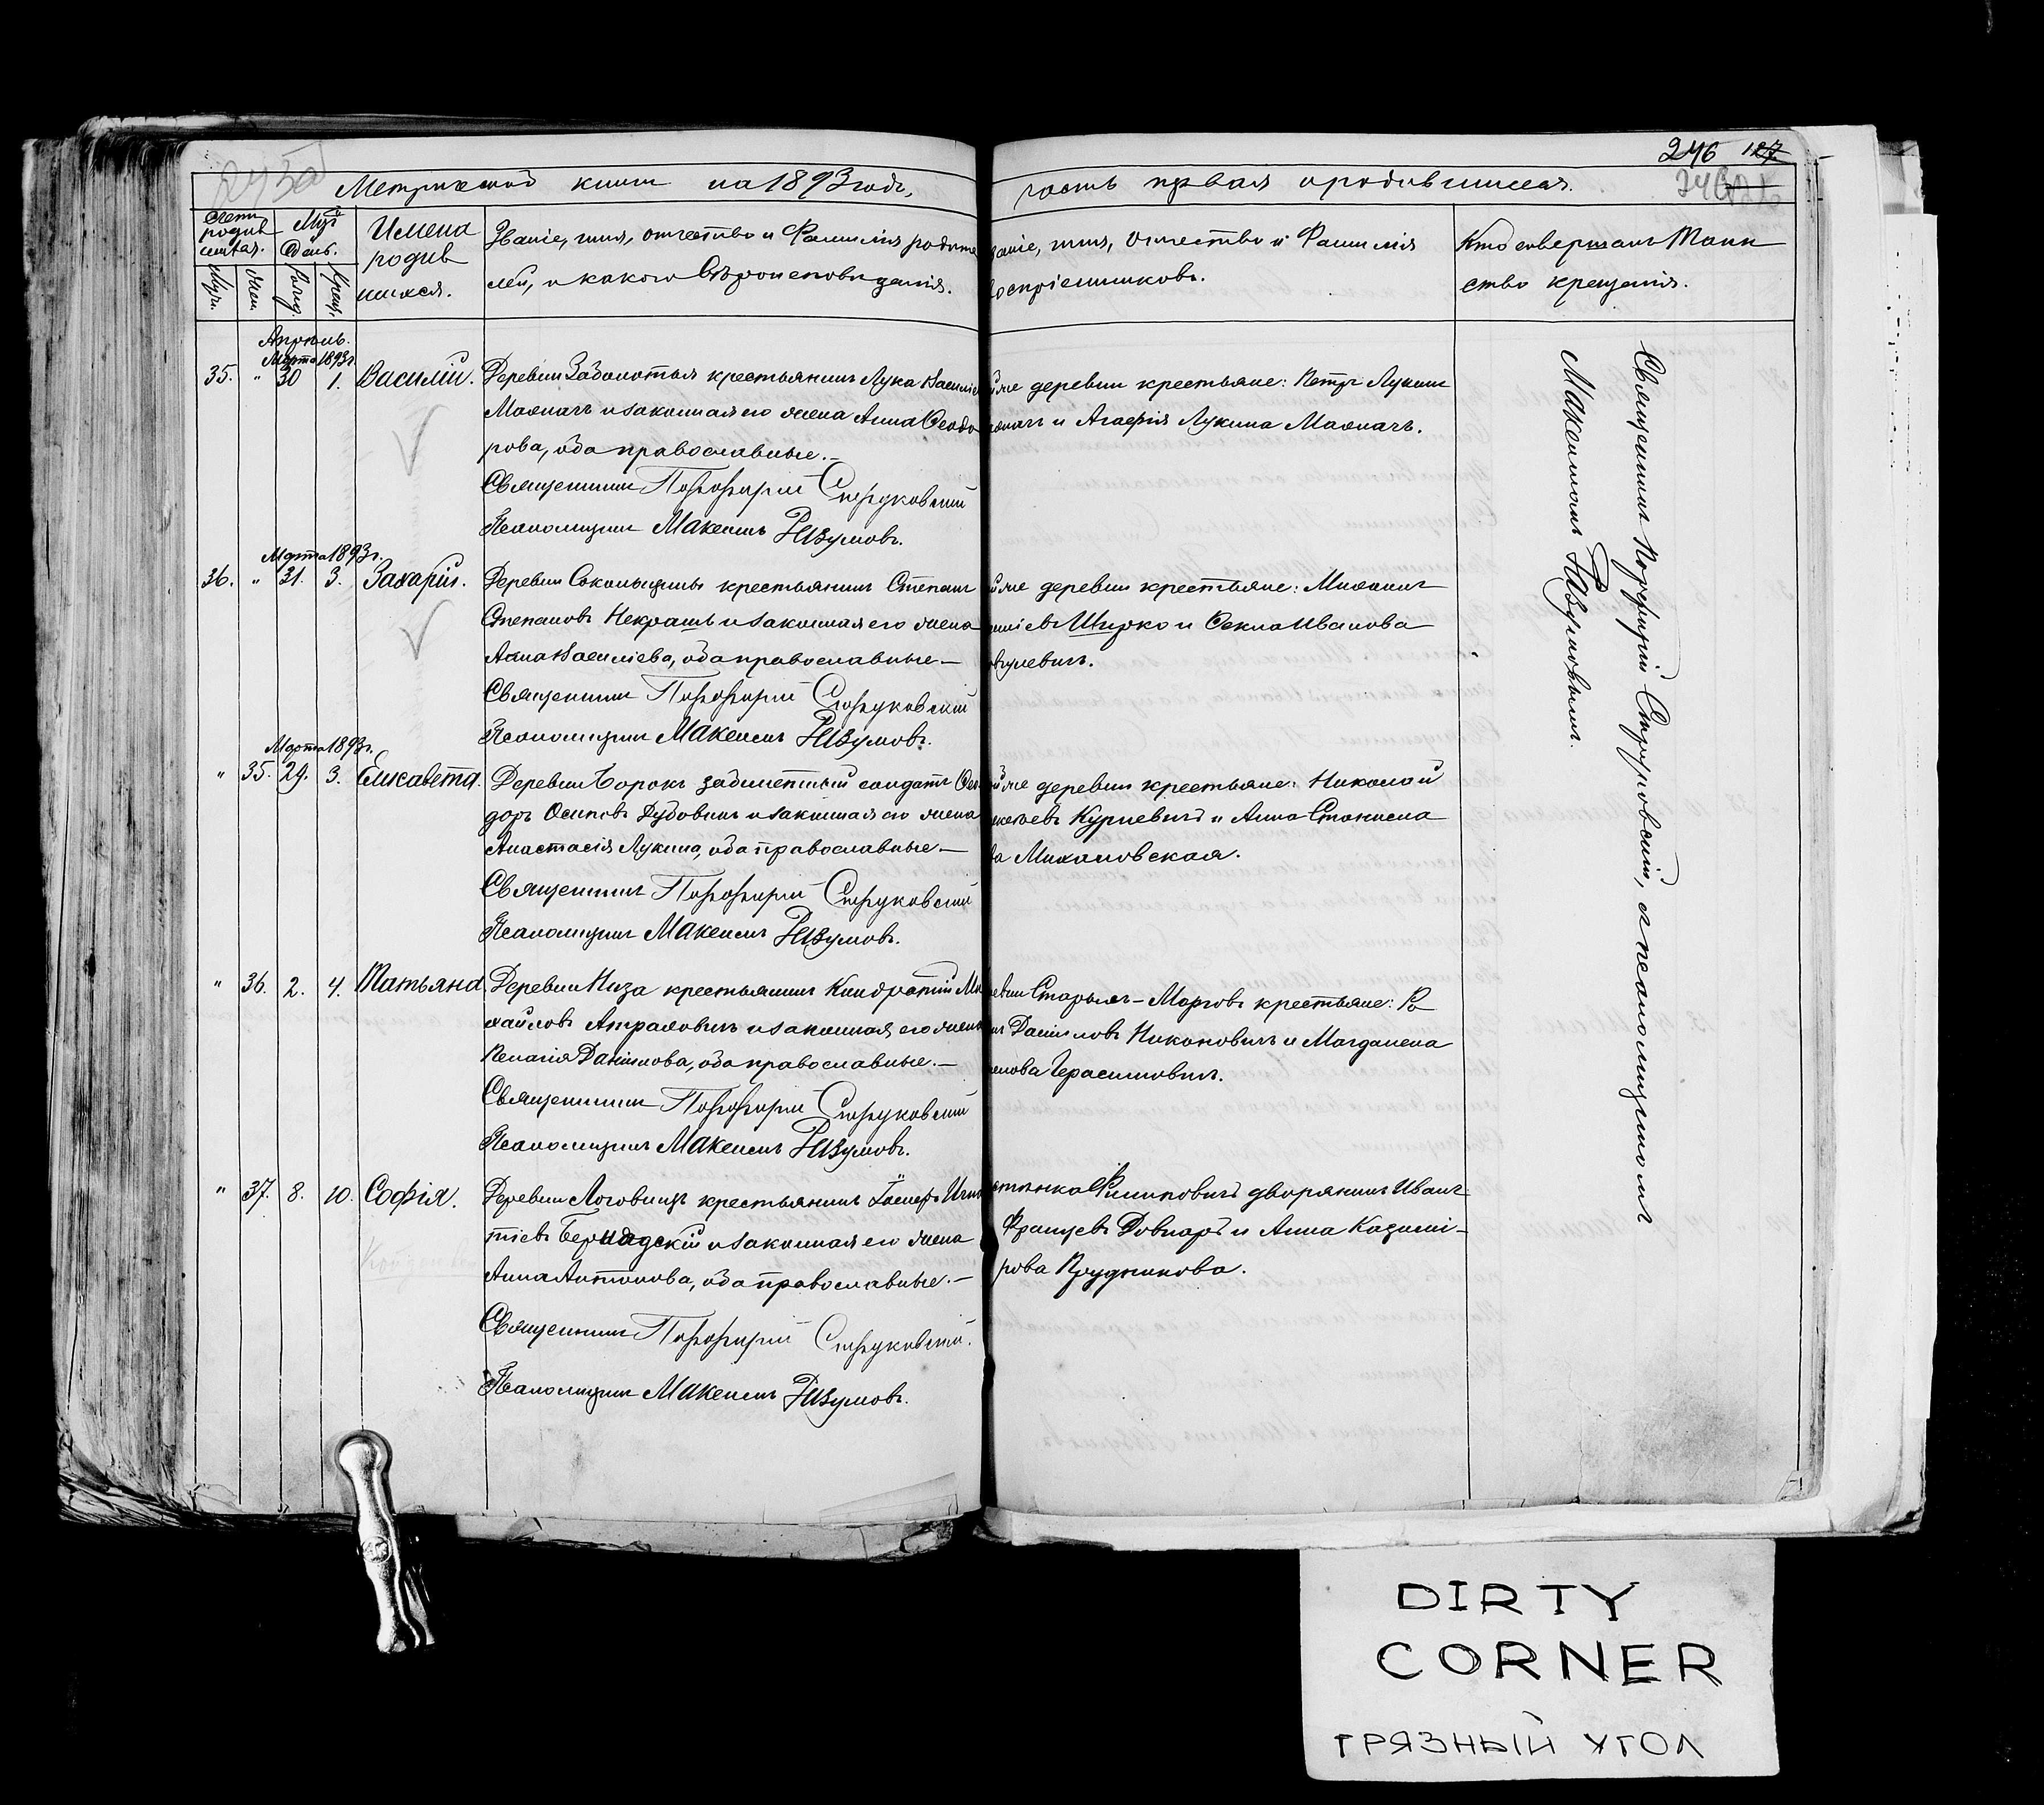 246 127
Метрической книги на 1893 годъ, часть первая о родившихся.
Счетъ родив шихся.
Муж. Жен.
Мѣс. День.
Рожд. Крещ.
Имена родив шихся.
Званіе, имя, отчество и Фамилія родите
лей, и какого Вѣроисповѣданія.
Званіе, имя, Отчество и Фамилія
воспріемниковъ.
Кто совершалъ Таин
ство крещенія.
Апрѣль.
Марта 1893 г.
35. " 30 1. Василій.
Деревни Заболотья крестьянинъ Лука Василіе
Махначъ и законная его жена Анна Ѳеодо
рова, оба православные.—
Священникъ Порфирій Струковскій
Псаломщикъ Максимъ Разумовъ.
деревни крестьяне: Петръ Лукинъ
Махначъ и Агафія Лукина Махначъ.
Марта 1893 г.
36. " 31. 3. Захарій.
Деревни Сокольщины крестьянинъ Степанъ
Степановъ Некрашъ и законная его жена
Анна Василіева, оба православные—
Священникъ Порфирій Струковскій
Псаломщикъ Максимъ Разумовъ.
деревни крестьяне: Михаилъ
Ширко и Ѳекла Иванова
Марта 1893 г.
" 35. 29. 3. Елисавета.
Деревни Борокъ забилетный солдатъ Ѳео
доръ Осиповъ Дубовикъ и законная его жена
Анастасія Лукина, оба православные—
Священникъ Порфирій Струковскій
Псаломщикъ Максимъ Разумовъ.
деревни крестьяне: Николай
Курневичъ и Анна Станисла
ва Михаловская.
" 36. 2. 4. Татьяна.
Деревни Низа крестьянинъ Кондратій Ми
хайловъ Атрахович и законная его жена
Пелагія Даніилова, оба православные.—
Священникъ Порфирій Струковскій
Псаломщикъ Максимъ Разумовъ.
Старыхъ-Морговъ крестьяне: Ро
Данииловъ Никоновичъ и Магдалена
Герасимовичъ.
" 37. 8. 10. Софія.
Деревни Логовищъ крестьянинъ Іосифъ Игна
тіевъ Бернадскій и законная его жена
Анна Антонова, оба православные.—
Священникъ Порфирій Струковскій.
Псаломщикъ Максимъ Разумовъ.
Филиповичъ дворянинъ Иванъ
Францевъ Довнаръ и Анна Казими-
рова Прудникова.
Священникъ Порфирій Струковскій, съ псаломщикомъ
Максимомъ Разумовымъ.
DIRTY
CORNER
ГРЯЗНЫЙ УГОЛ